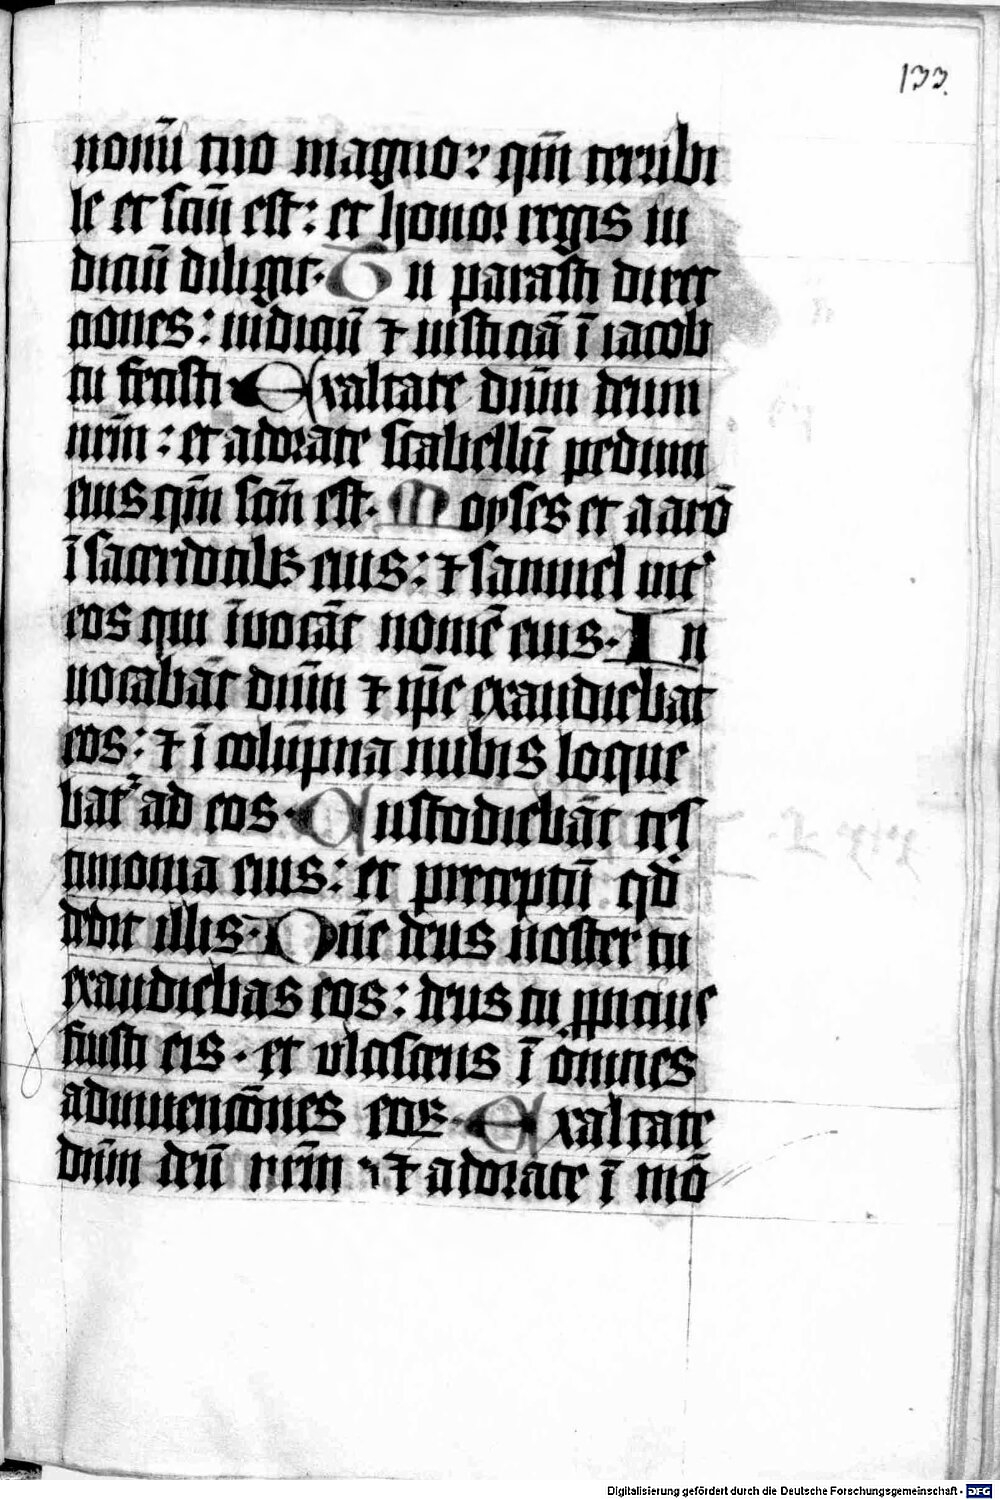 133.
nomī tuo magno: qm̄ terribi
le et sc̄m est: et honor regis iu
diciū diligit. Tu parasti direc
ciones: iudiciū ⁊ iusticiā ī iacob
tu fecisti Exaltate dn̄m deum
nr̄m: et adorate scabellū pedum
eius qm̄ sc̄m est. Moyses et aarō
ī sacerdotibꝫ eius: ⁊ samuel int͛
eos qui īvocāt nomē eius. In
uocabāt dn̄m ⁊ ip̄e exaudiebat
eos: ⁊ ī colūpna nubis loque
bat͛ ad eos. Custodiebāt tes
timonia eius: et preceptū qd̓
dedit illis. Dn̄e deus noster tu
exaudiebas eos: deus tu ꝓpiciuſ
fuisti eis. et ulciscens ī omnes
adinuencōnes eoꝝ. Exaltate
dn̄m deū nr̄m: ⁊ adorate ī mō
Digitalisierung gefördert durch die Deutsche Forschungsgemeinschaft - DFG